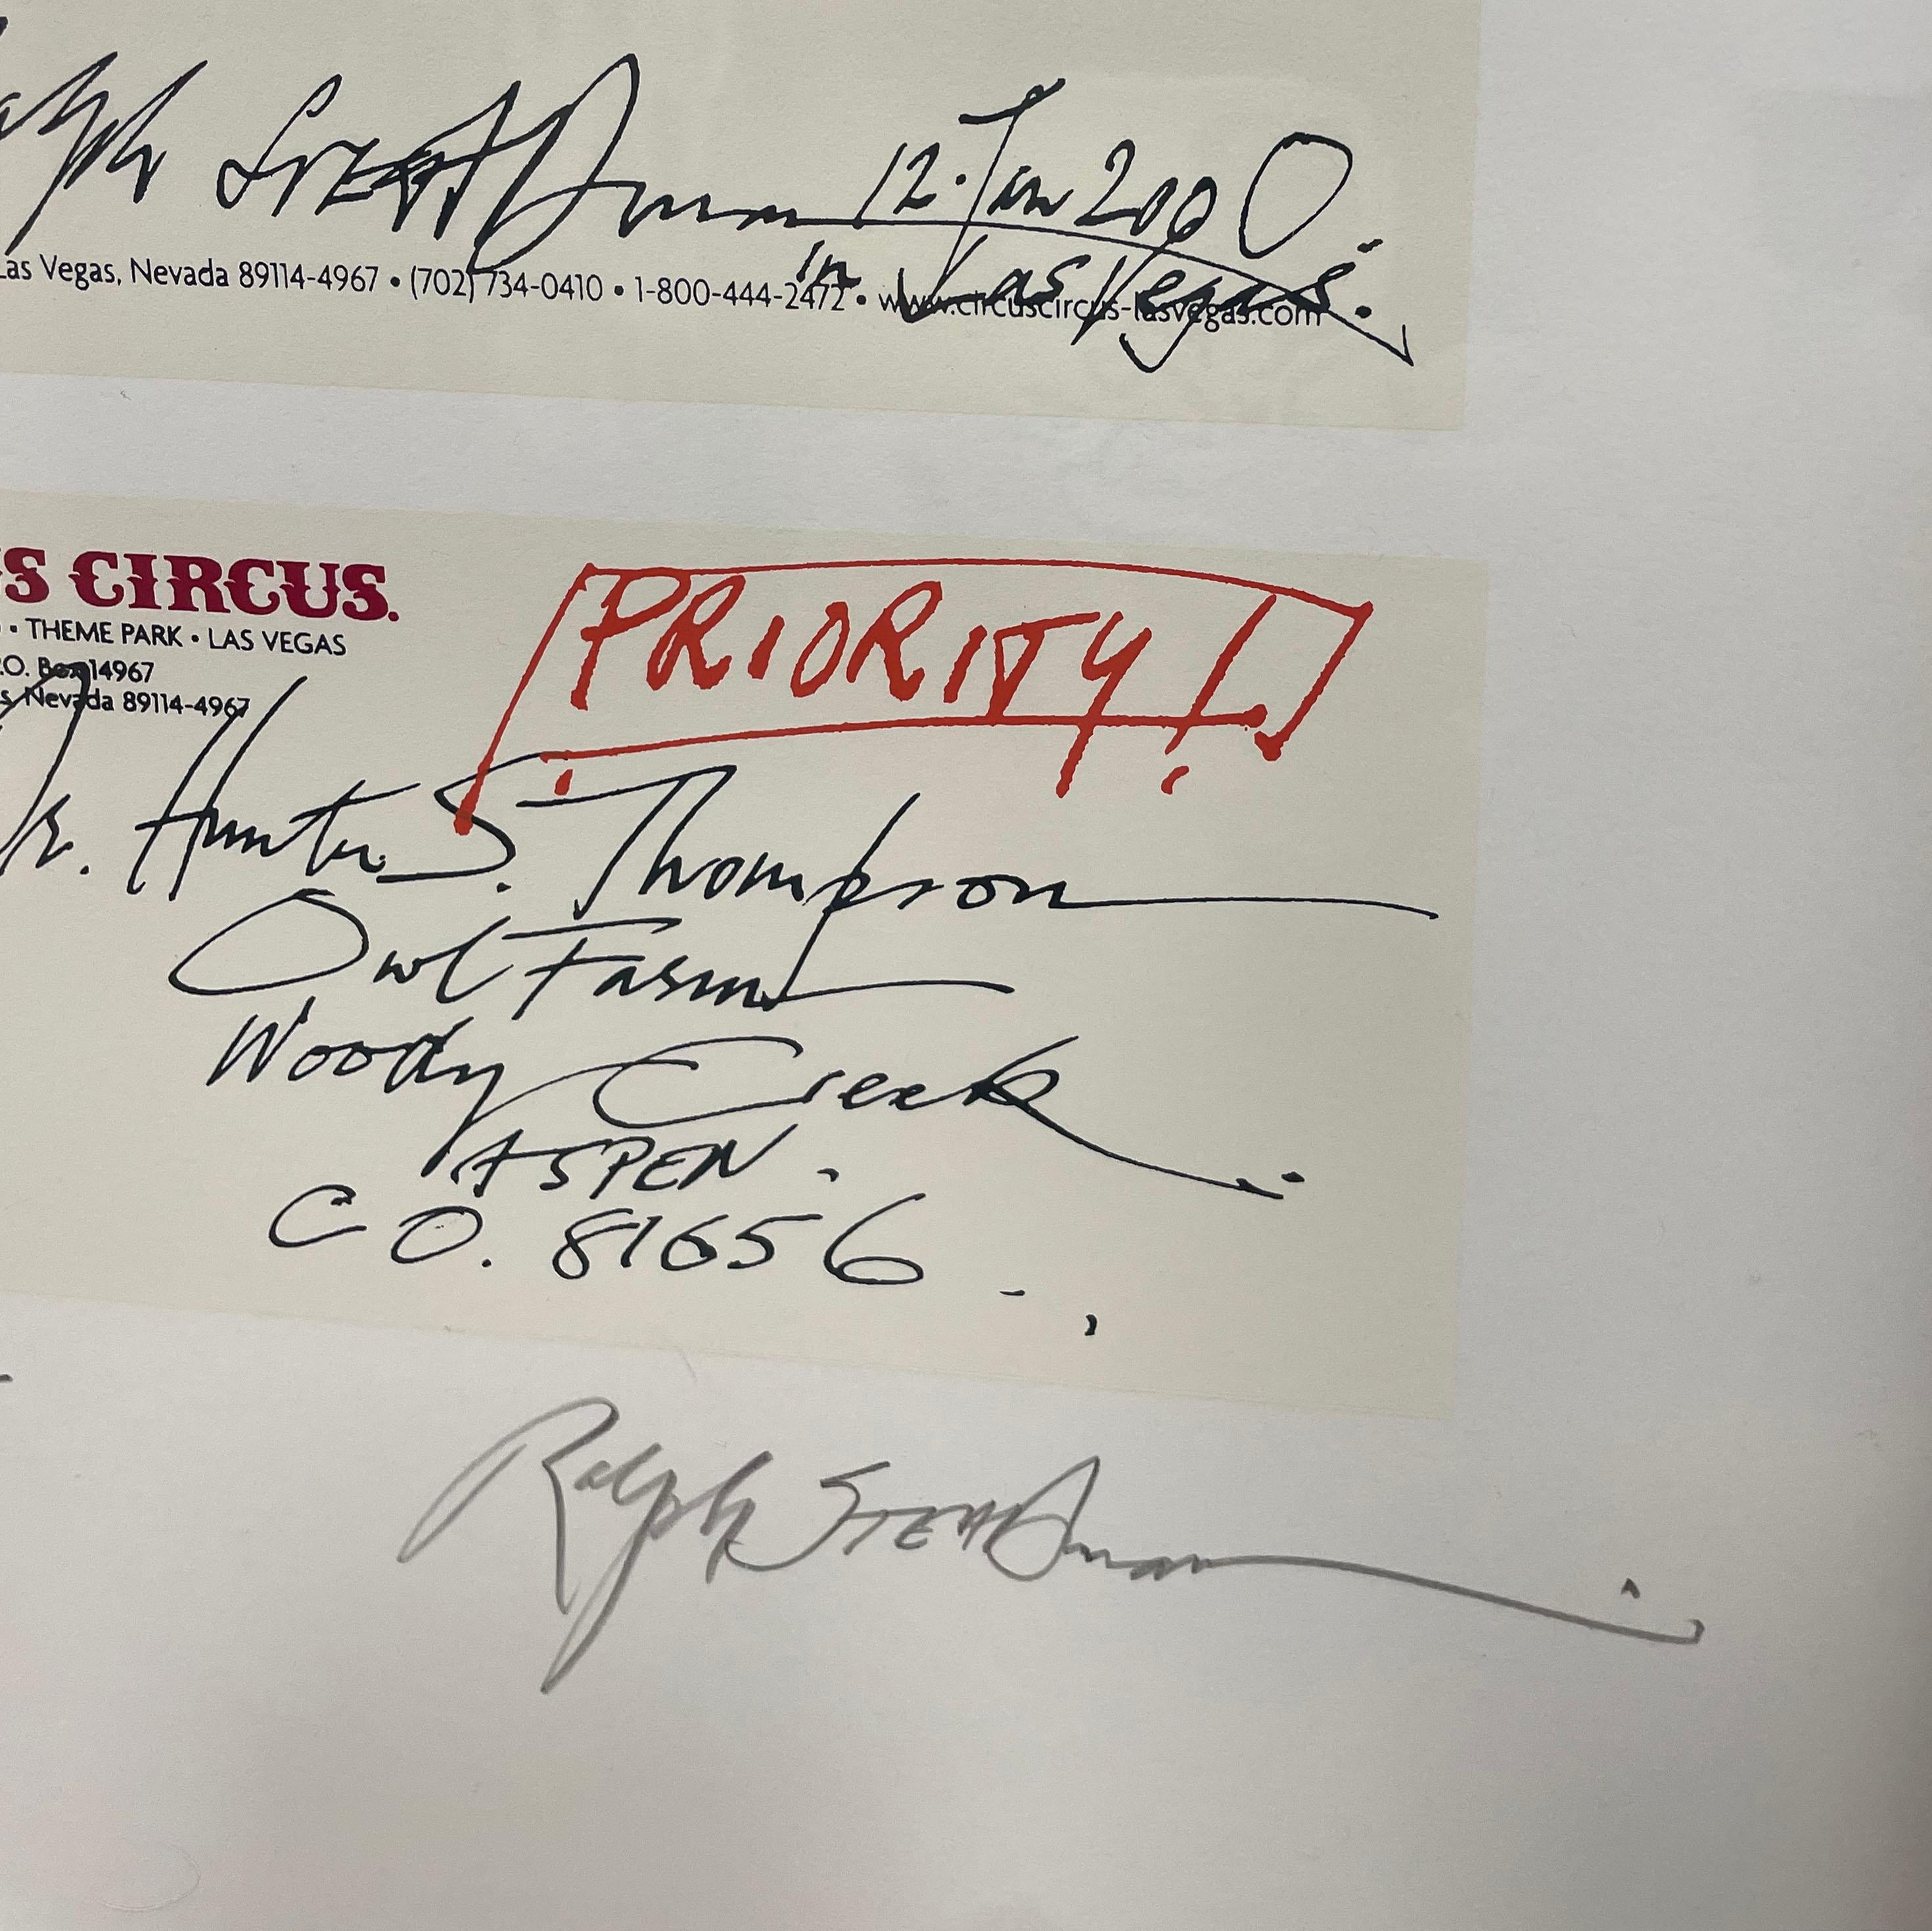 Ralph STEADman 12. Jan 2000.
in Las Vegas.
Las Vegas, Nevada 89114-4967 • (702) 734-0410 • 1-800-444-2472 • www.circuscircus-lasvegas.com
S CIRCUS.
• THEME PARK • LAS VEGAS
P.O. Box 14967
s, Nevada 89114-4967
PRIORITY!
Dr. Hunter S. Thompson
Owl Farm
Woody Creek
ASPEN.
CO. 81656
Ralph STEADman